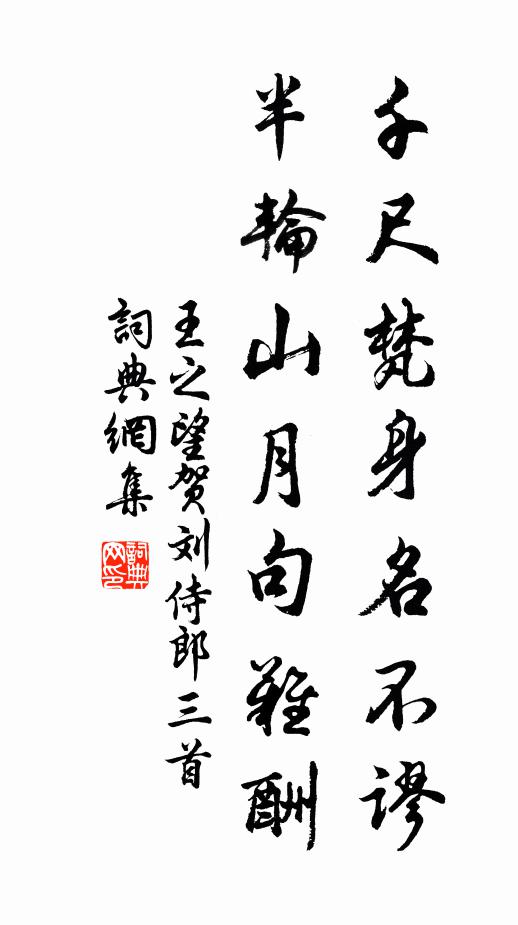 千尺梵身名不謬
半輪山月句難酬
王之望賀刘侍郎三首
詞典網集
詞典网印